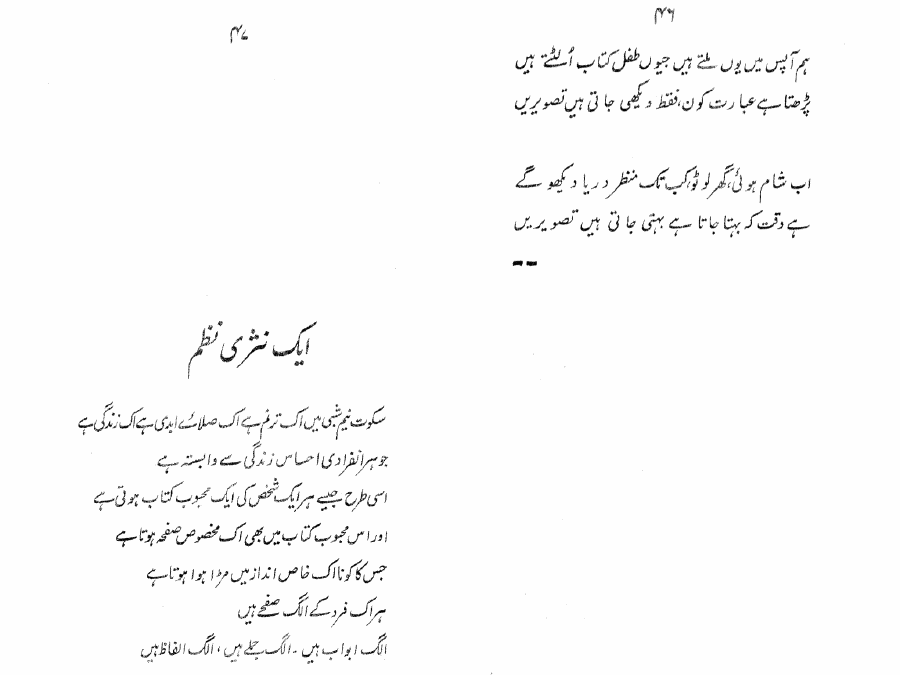 ۴۶
ہم آپس میں یوں ملتے ہیں جیوں طفل کتاب اُلٹتے ہیں
پڑھتا ہے عبارت کون، فقط دیکھی جاتی ہیں تصویریں
اب شام ہوئی، گھر لوٹو، کب تک منظر دریا دیکھو گے
ہے وقت کہ بہتا جاتا ہے بہتی جاتی ہیں تصویریں
۴۷
ایک نثری نظم
سکوت نیم شبی میں اک ترنم ہے اک صلائے ابدی ہے اک زندگی ہے
جو ہر انفرادی احساس زندگی سے وابستہ ہے
اسی طرح جیسے ہر ایک شخص کی ایک محبوب کتاب ہوتی ہے
اور اس محبوب کتاب میں بھی اک مخصوص صفحہ ہوتا ہے
جس کا کونا اک خاص انداز میں مڑا ہوا ہوتا ہے
ہر اک فرد کے الگ صفحے ہیں
الگ ابواب ہیں ۔ الگ جملے ہیں ، الگ الفاظ ہیں